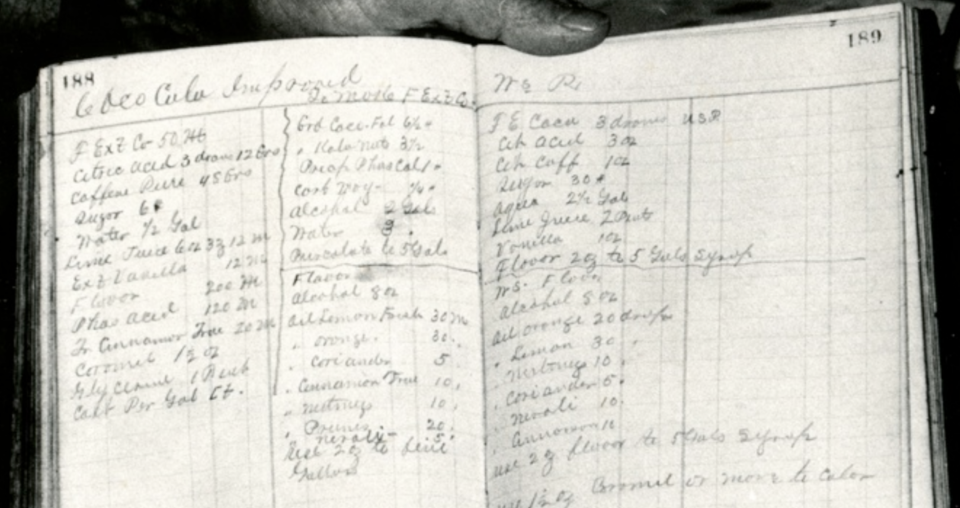 188
Coco Cola Improved
F Ext Co 50
Citric Acid 3 drams 12 Grs
Caffeine Pure 48 Grs
Sugar 6#
Water ½ Gal
Lime Juice 6 oz 3z 12 M
Ext Vanilla 12 M
Flavor 200 M
Phos Acid 120 M
Tr Cinnamon True 20 M
Coromel 1½ oz
Glycerine 1
Cost Per Gal
To Make F Ext Co.
Grd Coca
" Kola nut 3½
Precip Phos Calc
Carb Mag
Alcohol 2 Gals
Water 3 "
Percolate to 5 Gals
Flavor
Alcohol 8 oz
Oil Lemon 30 M
" orange 30 "
" coriander 5 "
" Cinnamon True 10 "
" Nutmeg 10 "
" 20 "
" neroli 5 "
Use 2 oz to five
Gallons
189
F E Coca 3 drams USP
Cit Acid 3 oz
Cit Caff 1 oz
Sugar 30 #
Aqua 2½ Gal
Lime Juice 2
Vanilla 1 oz
Flavor 2 oz to 5 Gals Syrup
Flavor
Alcohol 8 oz
Oil orange 20 drops
" Lemon 30 "
" Nutmeg 10 "
" coriander 5 "
" Neroli 10 "
" Cinnamon
use 2 oz flavor to 5 Gals Syrup
use 1½ oz or more to color